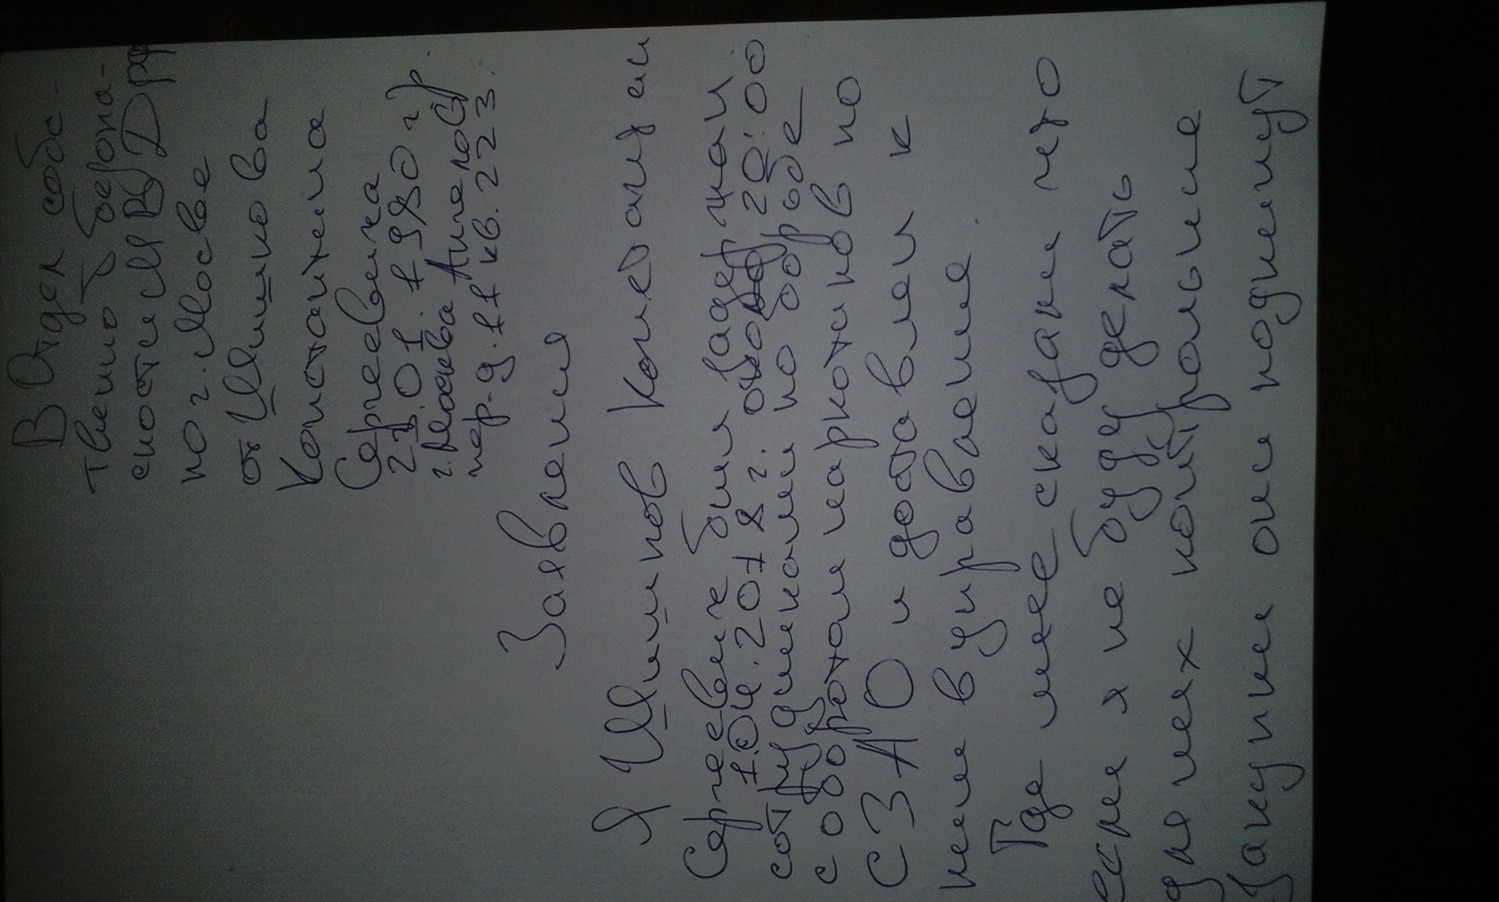 В Отдел собс-
твенно безопа-
сности МВД РФ
по г. Москве
от Шишкова
Константина
Сергеевича
23.01.1980 г.р.
г. Москва Ангелов
пер. д. 11 кв. 223.
Заявления
Я Шишков Констант ин
Сергеевич был задержан
1.04.2018 г. около 20:00
сотрудниками по борьбе
с оборотом наркотиков по
СЗАО и доставлен к
ним в управление.
Где мне сказали что
если я не буду делать
для них контрольные
закупки они подкинут